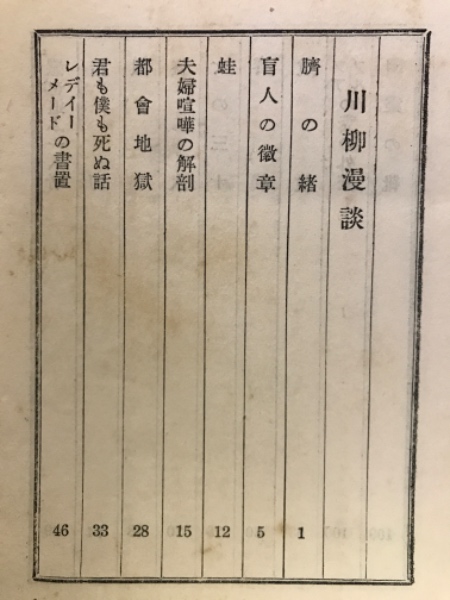 川柳漫談
臍の緒 1
盲人の徽章 5
蛙 12
夫婦喧嘩の解剖 15
都會地獄 28
君も僕も死ぬ話 33
レデイーメードの書置 46